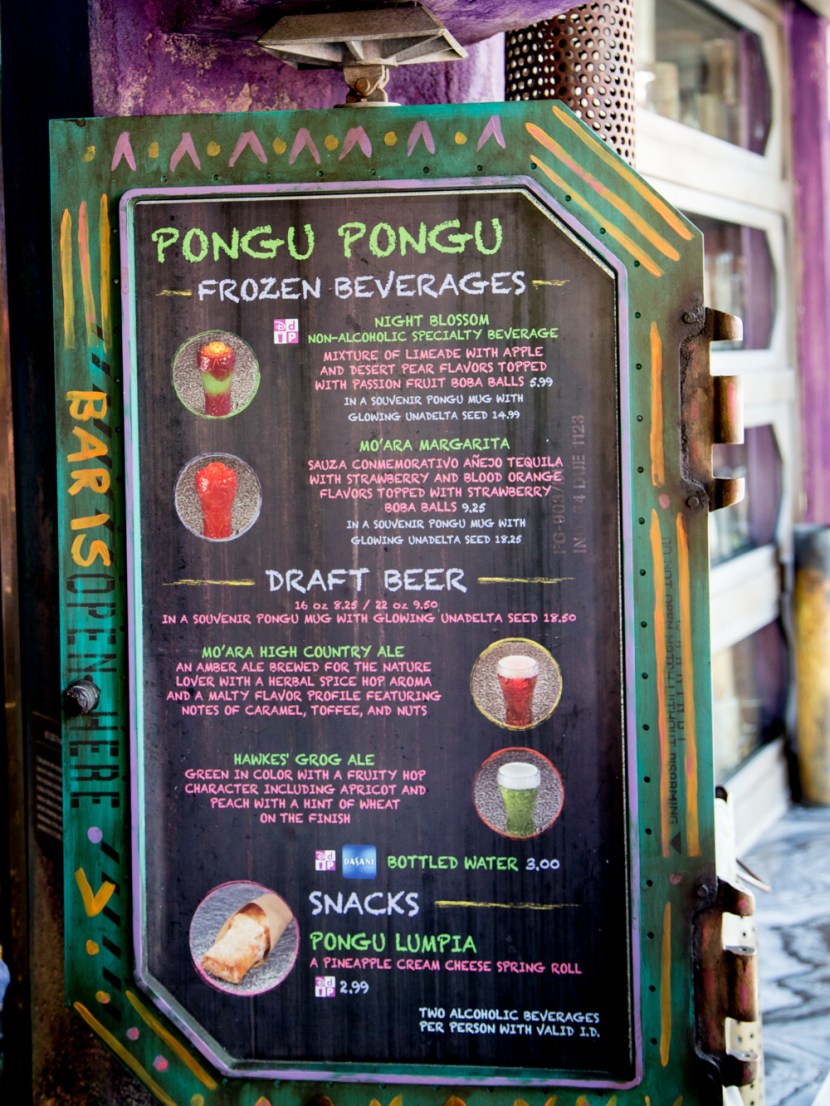 PONGU PONGU
FROZEN BEVERAGES
NIGHT BLOSSOM
NON-ALCOHOLIC SPECIALTY BEVERAGE
MIXTURE OF LIMEADE WITH APPLE
AND DESERT PEAR FLAVORS TOPPED
WITH PASSION FRUIT BOBA BALLS 5.99
IN A SOUVENIR PONGU MUG WITH
GLOWING UNADELTA SEED 14.99
MO'ARA MARGARITA
SAUZA CONMEMORATIVO AÑEJO TEQUILA
WITH STRAWBERRY AND BLOOD ORANGE
FLAVORS TOPPED WITH STRAWBERRY
BOBA BALLS 9.25
IN A SOUVENIR PONGU MUG WITH
GLOWING UNADELTA SEED 18.25
DRAFT BEER
16 oz 8.25 / 22 oz 9.50
IN A SOUVENIR PONGU MUG WITH GLOWING UNADELTA SEED 18.50
MO'ARA HIGH COUNTRY ALE
AN AMBER ALE BREWED FOR THE NATURE
LOVER WITH A HERBAL SPICE HOP AROMA
AND A MALTY FLAVOR PROFILE FEATURING
NOTES OF CARAMEL, TOFFEE, AND NUTS
HAWKES' GROG ALE
GREEN IN COLOR WITH A FRUITY HOP
CHARACTER INCLUDING APRICOT AND
PEACH WITH A HINT OF WHEAT
ON THE FINISH
DASANI BOTTLED WATER 3.00
SNACKS
PONGU LUMPIA
A PINEAPPLE CREAM CHEESE SPRING ROLL
2.99
TWO ALCOHOLIC BEVERAGES
PER PERSON WITH VALID I.D.
BAR IS OPEN HERE